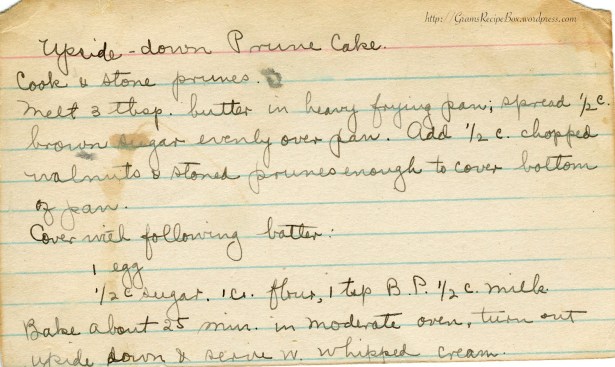 http://GramsRecipeBox.wordpress.com
Upside-down Prune Cake.
Cook & stone prunes.
Melt 3 tbsp. butter in heavy frying pan; spread 1/2 c.
brown sugar evenly over pan. Add 1/2 c. chopped
walnuts & stoned prunes enough to cover bottom
of pan.
Cover with following batter:
1 egg
1/2 c sugar. 1 c. flour, 1 tsp B.P. 1/2 c. milk
Bake about 25 min. in moderate oven, turn out
upside down & serve w. whipped cream.